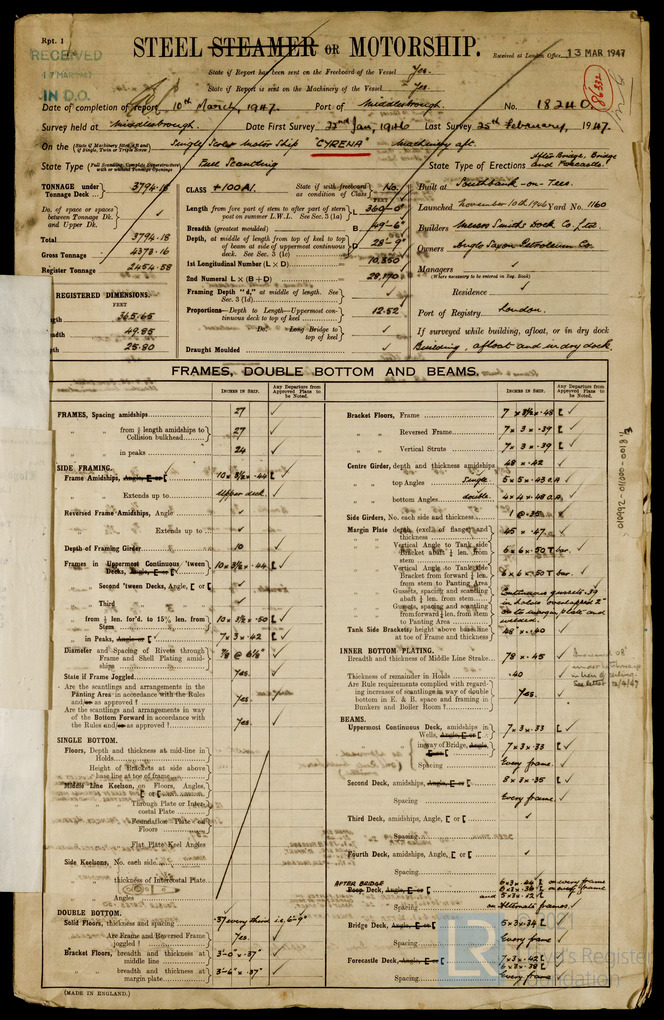 Rpt. 1
RECEIVED
17 MAR 1947
IN D.O.
STEEL STEAMER OR MOTORSHIP.
Received at London Office 13 MAR 1947
State if Report has been sent on the Freeboard of the Vessel Yes.
State if Report is sent on the Machinery of the Vessel Yes.
Date of completion of report 10th March, 1947. Port of Middlesbrough. No. 18240
Survey held at Middlesbrough. Date First Survey 22nd Jan, 1946 Last Survey 25th February, 1947.
On the Single Screw Motor Ship "CYRENA" Machinery aft.
State Type Full Scantling State Type of Erections After Bridge, Bridge and Forecastle.
TONNAGE under Tonnage Deck 3794.18
Do. of space or spaces between Tonnage Dk. and Upper Dk. ✓
Total 3794.18
Gross Tonnage 4373.16
Register Tonnage 2454.58
REGISTERED DIMENSIONS.
FEET
365.65
49.95
25.80
CLASS +100A1. State if with freeboard as condition of Class No.
FEET
Length from fore part of stem to after part of stern post on summer L.W.L. See Sec. 3 (1a) L 360-0"
Breadth (greatest moulded) B 49-6"
Depth, at middle of length from top of keel to top of beam at side of uppermost continuous deck. See Sec. 3 (1c) D 28-9"
1st Longitudinal Number (L × D) 10,350
2nd Numeral L × (B + D) 28,170
Framing Depth "d," at middle of length. See Sec. 3 (1d) ✓
Proportions—Depth to Length—Uppermost continuous deck to top of keel 12.52
Do. Long Bridge to top of keel ✓
Draught Moulded ✓
Built at Southbank-on-Tees.
Launched November 10th 1946 Yard No. 1160
Builders Messrs Smiths Dock Co., Ltd.
Owners Anglo Saxon Petroleum Co.
Managers ✓
(Where necessary to be entered in Reg. Book)
Residence ✓
Port of Registry London.
If surveyed while building, afloat, or in dry dock
Building, afloat and in dry dock.
FRAMES, DOUBLE BOTTOM AND BEAMS.
INCHES IN SHIP. Any Departure from Approved Plans to be Noted.
FRAMES, Spacing amidships 27 ✓
" " from ⅗ length amidships to Collision bulkhead 27 ✓
" " in peaks 24 ✓
SIDE FRAMING.
Frame Amidships, Angle, E or [ 10 × 3½ × .44 [ ✓
" " Extends up to Upper deck. ✓
Reversed Frame Amidships, Angle ✓
" " Extends up to ✓
Depth of Framing Girder 10 ✓
Frames in Uppermost Continuous 'tween Decks, Angle, E or [ 10 × 3½ × .44 [ ✓
" Second 'tween Decks, Angle, [ or [ ✓
" Third " " " ✓
" from ⅕ len. for'd. to 15% len. from Stem 10 × 3½ × .50 [ ✓
" in Peaks, Angle or [ 7 × 3 × .42 [ ✓
Diameter and Spacing of Rivets through Frame and Shell Plating amidships ⅞ @ 6⅛" ✓
State if Frame Joggled Yes. ✓
Are the scantlings and arrangements in the Panting Area in accordance with the Rules and/or as approved? Yes. ✓
Are the scantlings and arrangements in way of the Bottom Forward in accordance with the Rules and/or as approved? Yes. ✓
SINGLE BOTTOM.
Floors, Depth and thickness at mid-line in Holds
Height of Brackets at side above base line at toe of frame
Middle Line Keelson, on Floors, Angles, [ or [
" " Through Plate or Intercostal Plate
" " Foundation Plate on Floors
" " Flat Plate Keel Angles
Side Keelsons, No. each side
" " thickness of Intercostal Plate
" " Angles
DOUBLE BOTTOM.
Solid Floors, thickness and spacing .37 every third i.e. 6'-9" ✓
" " Are Frame and Reversed Frame joggled? Yes. ✓
Bracket Floors, breadth and thickness at middle line 3'-0" × .37" ✓
" " breadth and thickness at margin plate 3'-6" × .37" ✓
INCHES IN SHIP. Any Departure from Approved Plans to be Noted.
Bracket Floors, Frame 7 × 3½ × .48 [ ✓
" " Reversed Frame 7 × 3 × .39 [ ✓
" " Vertical Struts 7 × 3 × .39 [ ✓
Centre Girder, depth and thickness amidships 48 × .42 ✓
" " top Angles Single 5 × 5 × .43 O.A ✓
" " bottom Angles double. 4 × 4 × .48 O.A ✓
Side Girders, No. each side and thickness 1 @ .35 ✓
Margin Plate depth (excl. of flange) and thickness 45 × .47 ✓
" " Vertical Angle to Tank side Bracket abaft ¼ len. from stem 6 × 6 × .50 T bar. ✓
" " Vertical Angle to Tank side Bracket from forward ¼ len. from stem to Panting Area 6 × 6 × .50 T bar. ✓
" " Gussets, spacing and scantling abaft ¼ len. from stem
" " Gussets, spacing and scantling from for'd ¼ len. from stem to Panting Area
Continuous gussets .39 in holes overlapped 2" on the margin plate and welded. ✓
Tank Side Brackets, height above base line at toe of Frame and thickness 48" × .40 ✓
INNER BOTTOM PLATING.
Breadth and thickness of Middle Line Strake 78 × .45 ✓
Thickness of remainder in Holds .40 ✓
Are Rule requirements complied with regarding increases of scantlings in way of double bottom in E. & B. space and framing in Bunkers and Boiler Room? Yes. ✓
BEAMS.
Uppermost Continuous Deck, amidships in Wells, Angle, E or [ 7 × 3 × .33 [ ✓
" " in way of Bridge, Angle, E or [ 7 × 3 × .33 [ ✓
" " Spacing Every frame. ✓
Second Deck, amidships, Angle, E or [ 8 × 3 × .35 [ ✓
" " Spacing Every frame. ✓
Third Deck, amidships, Angle, [ or [ ✓
Spacing
Fourth Deck, amidships, Angle, [ or [ ✓
Spacing
AFTER BRIDGE
Poop Deck, Angle, E or [ 6×3×.44 [ on every frame
and 5×3×.12 [
" " Spacing Alternate frames. ✓
Bridge Deck, Angle, E or [ 5×3×.34 [ ✓
" " Spacing Every frame ✓
Forecastle Deck, Angle, E or [ 7×3×.42 [ ✓
6×3×.38 [
" " Spacing Every frame ✓
(MADE IN ENGLAND.)
010992-011000-0018
LR
© 2021
Lloyd's Register
Foundation